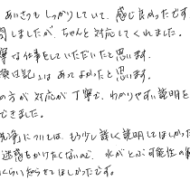 あいさつもしっかりしていて、感じ良かったです
問しましたが、ちゃんと対応してくれました。
寧な仕事をしていただいたと思います。
はあってよかったと思います。
の方が対応が丁寧で、わかりやすい説明を
できました。
については、もう少し詳しく説明してほしかった
迷惑をかけたくないので、水がとぶ可能性の
知らせてほしかったです。